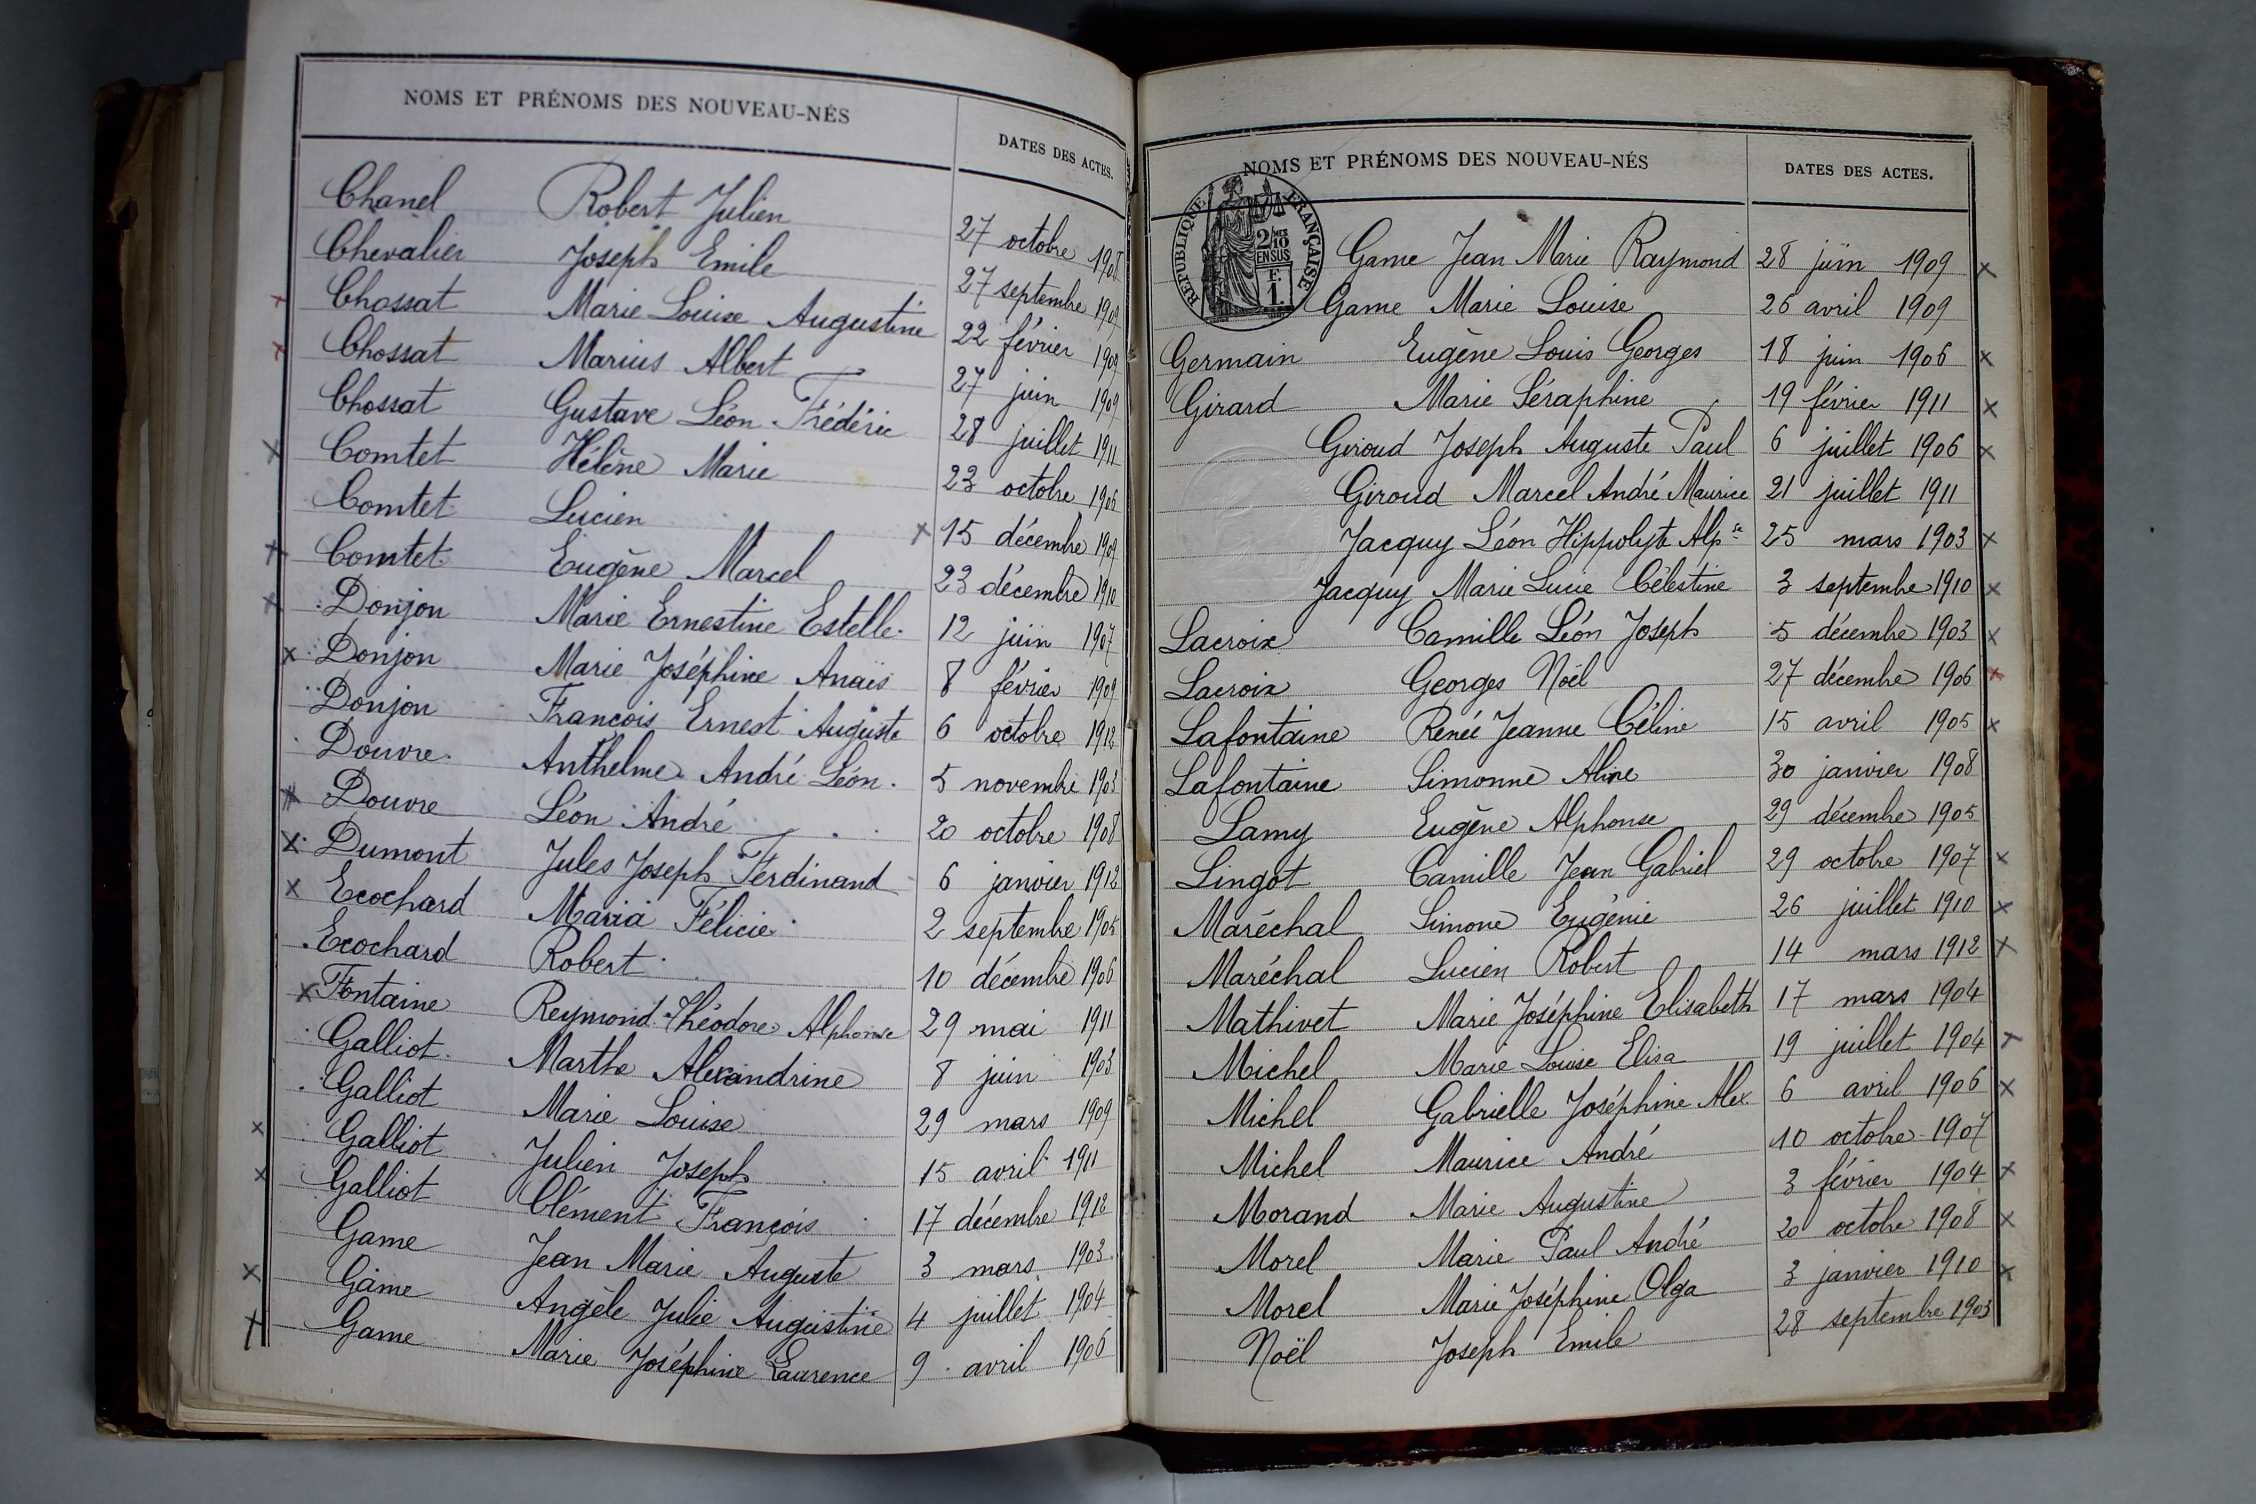 NOMS ET PRÉNOMS DES NOUVEAU-NÉS DATES DES ACTES.
Chanel Robert Julien 27 octobre 1908
Chevalier Joseph Emile 27 septembre 1909
Chossat Marie Louise Augustine 22 février 1909
Chossat Marius Albert 27 juin 1909
Chossat Gustave Léon Frédéric 28 juillet 1911
Comtet Hélène Marie 23 octobre 1905
Comtet Lucien 15 décembre 1909
Comtet Eugène Marcel 23 décembre 1910
Donjon Marie Ernestine Estelle 12 juin 1907
Donjon Marie Joséphine Anaïs 8 février 1909
Donjon François Ernest Auguste 6 octobre 1912
Douvre Anthelme André Léon 5 novembre 1903
Douvre Léon André 20 octobre 1908
Dumont Jules Joseph Ferdinand 6 janvier 1912
Ecochard Maria Félicie 2 septembre 1905
Ecochard Robert 10 décembre 1906
Fontaine Reymond Théodore Alphonse 29 mai 1911
Galliot Marthe Alexandrine 8 juin 1903
Galliot Marie Louise 29 mars 1909
Galliot Julien Joseph 15 avril 1911
Galliot Clément François 17 décembre 1912
Game Jean Marie Auguste 3 mars 1903
Game Angèle Julie Augustine 4 juillet 1904
Game Marie Joséphine Laurence 9 avril 1906
NOMS ET PRÉNOMS DES NOUVEAU-NÉS DATES DES ACTES.
RÉPUBLIQUE FRANÇAISE
2 MES
10
EN SUS
F.
1.
Game Jean Marie Raymond 28 juin 1909
Game Marie Louise 26 avril 1909
Germain Eugène Louis Georges 18 juin 1906
Girard Marie Séraphine 19 février 1911
Giroud Joseph Auguste Paul 6 juillet 1906
Giroud Marcel André Maurice 21 juillet 1911
Jacquy Léon Hippolyte Alpse 25 mars 1903
Jacquy Marie Lucie Célestine 3 septembre 1910
Lacroix Camille Léon Joseph 5 décembre 1903
Lacroix Georges Noël 27 décembre 1906
Lafontaine Renée Jeanne Céline 15 avril 1905
Lafontaine Simonne Aline 30 janvier 1908
Lamy Eugène Alphonse 29 décembre 1905
Lingot Camille Jean Gabriel 29 octobre 1907
Maréchal Simone Eugénie 26 juillet 1910
Maréchal Lucien Robert 14 mars 1912
Mathivet Marie Joséphine Elisabeth 17 mars 1904
Michel Marie Louise Elisa 19 juillet 1904
Michel Gabrielle Joséphine Alex 6 avril 1906
Michel Maurice André 10 octobre 1907
Morand Marie Augustine 3 février 1904
Morel Marie Paul André 20 octobre 1908
Morel Marie Joséphine Olga 3 janvier 1910
Noël Joseph Emile 28 septembre 1903